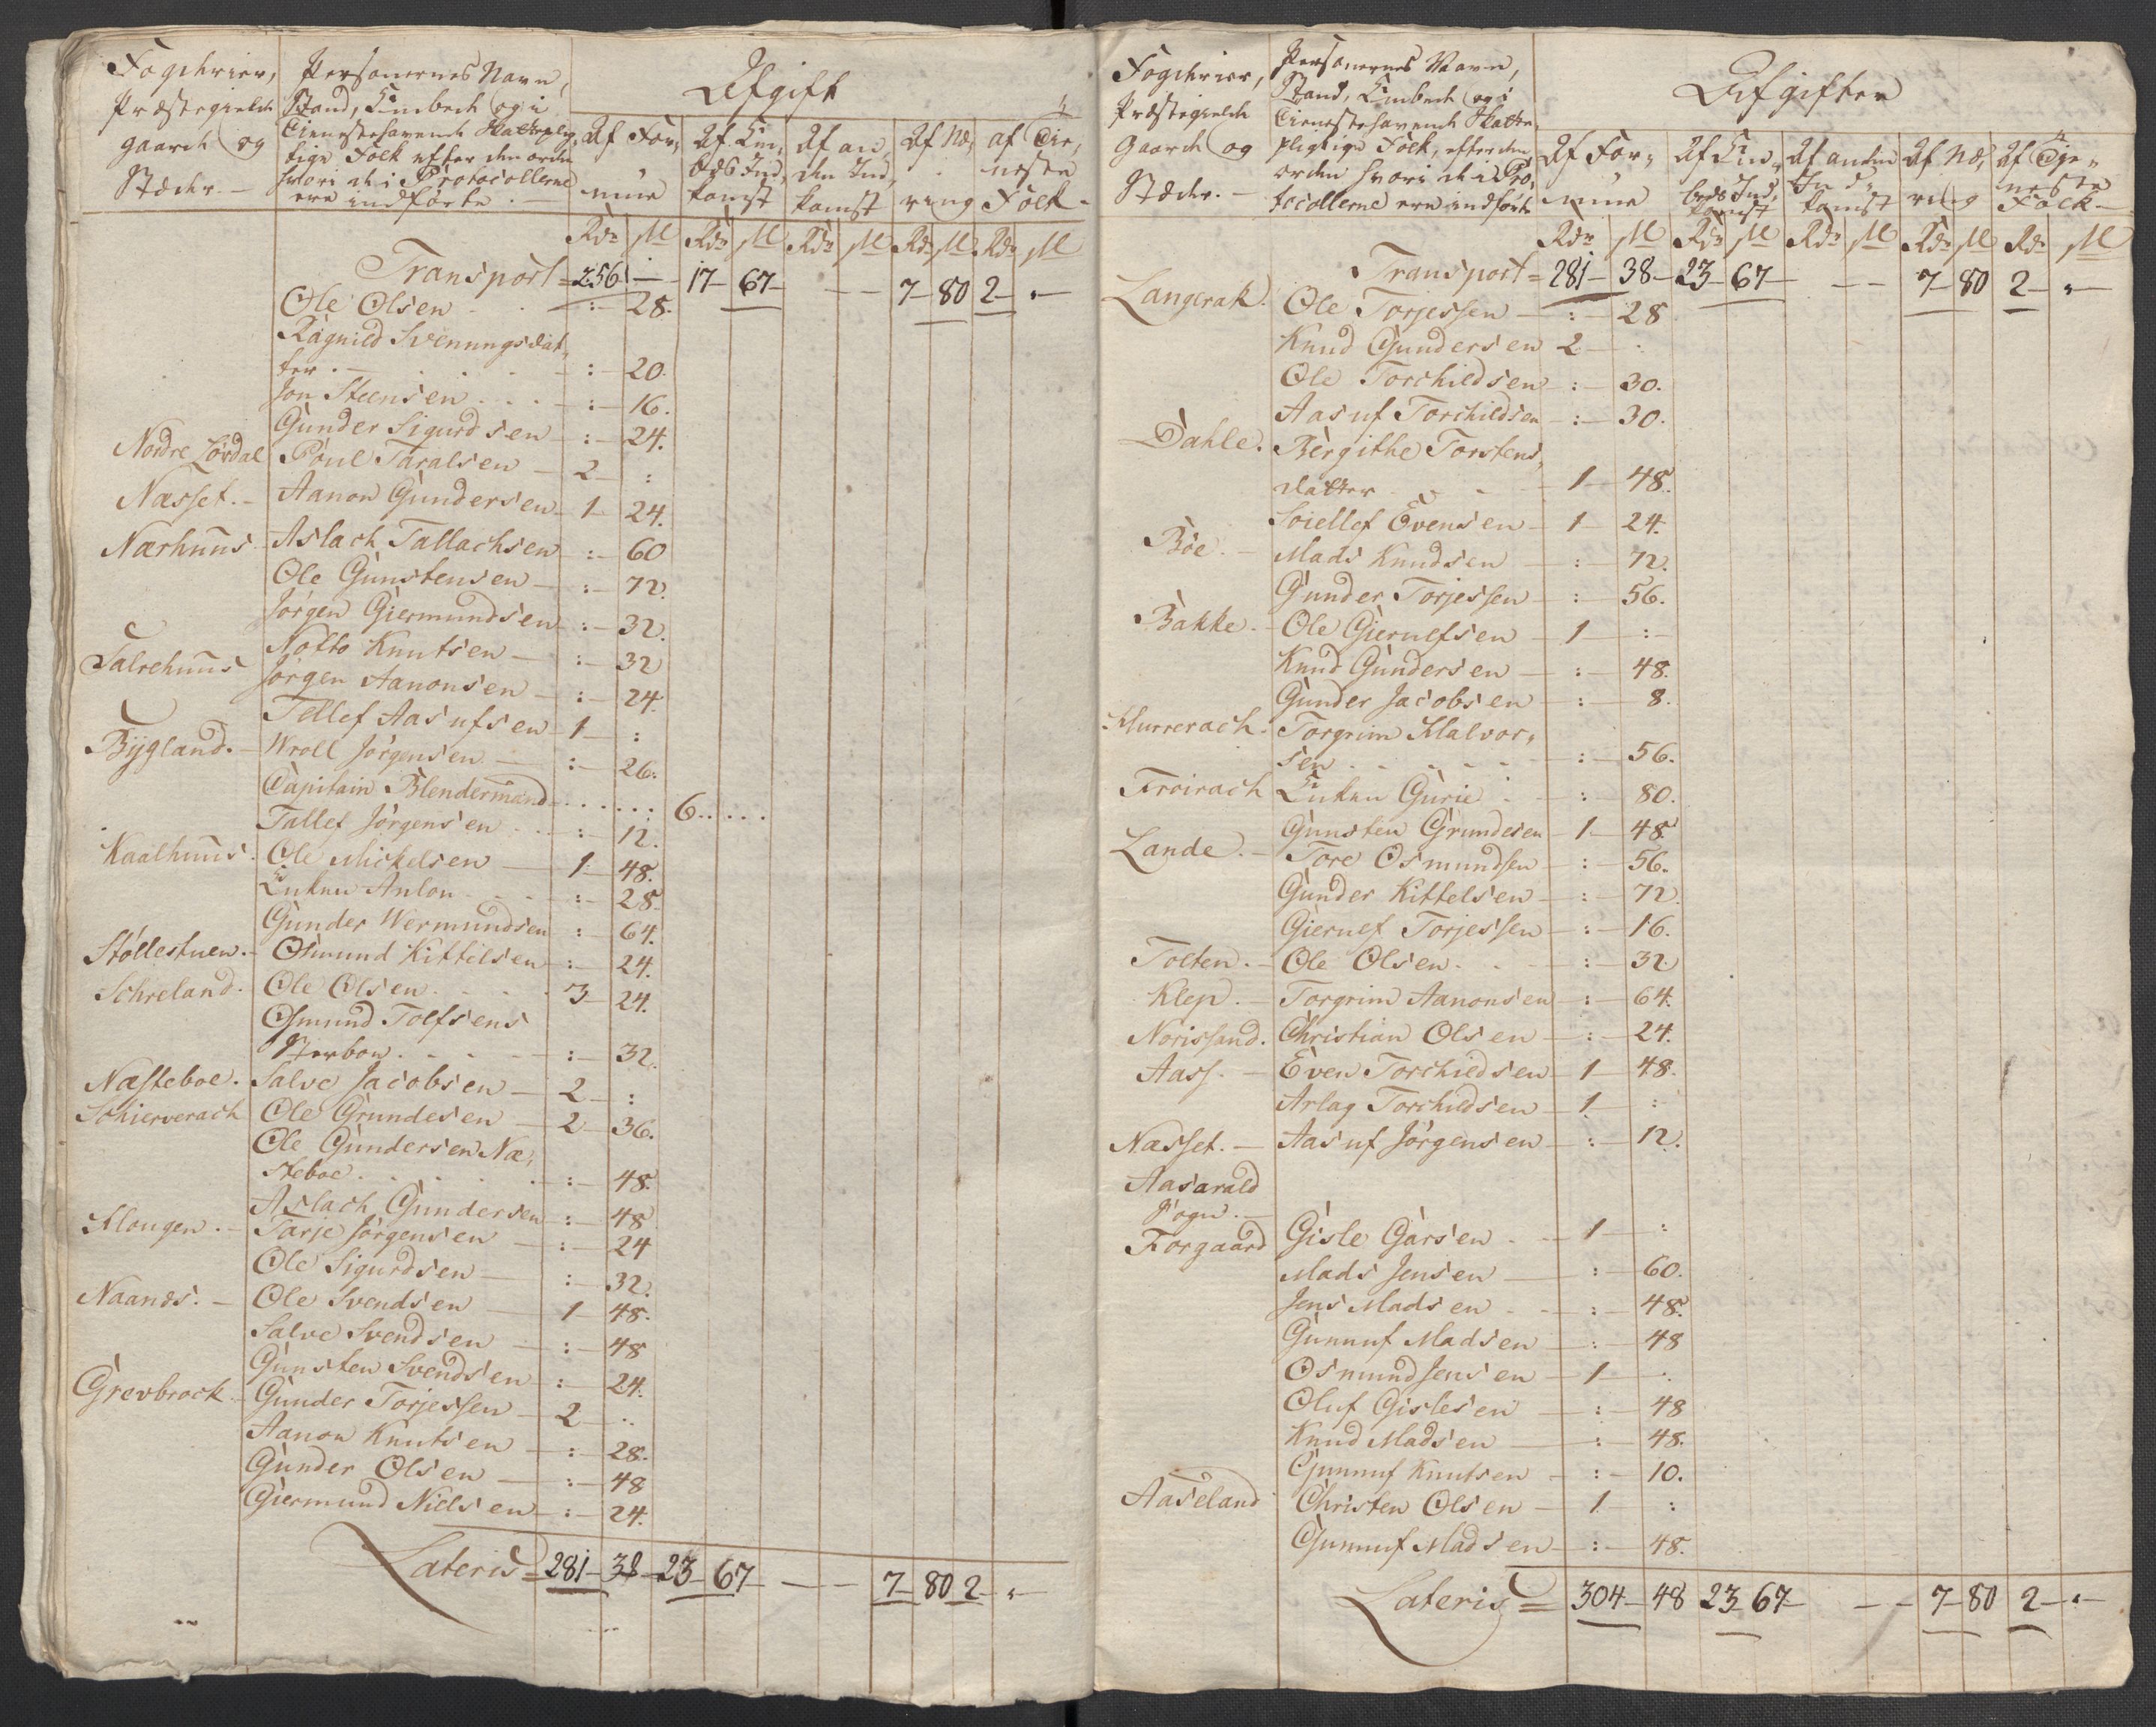 Fogderier,
Præstegield
gaard og
Stæder. —
Personernes Navn,
Stand, Embede og i
Tienestehavende Skatteplig„
tige Folk efter den orden
hvori de i Protocollerne
ere indførte. —
Afgift
Af For„
mue
Af Em„
beds Ind„
komst
Af an„
den Ind„
komst
Af Næ„
ring
af Tie„
neste
Folk.
Rdr ß Rdr ß Rdr ß Rdr ß Rdr ß
Transport = 256 — 17 — 67 — — — 7 — 80 2 — „ —
Ole Olsen . . : — 28.
Ragnild Svenungsdat„
ter . — . . . : — 20.
Jon Steensen . . . : — 16.
Gunder Sigurdsen — : — 24.
Nordre Lovdal Poul Taralsen — 2 — :
Næsset. — Aanon Gundersen — 1 — 24.
Nærhuus — Aslach Tallachsen : — 60
Ole Gunstensen — : — 72.
Jørgen Giermundsen — : — 32.
Notto Knutsen — : — 32
Salrehuus Jørgen Aanonsen — : — 24.
Tellef Aasufsen — 1 — :
Bygland. — Wroll Jørgensen — : — 26.
Capitain Blendermand . . . . . . 6 . . . . .
Tallef Jørgensen . . : — 12.
Kaalhuus. Ole Mickelsen — 1 — 48.
Enken Anlou . . . : — 28.
Gunder Wermundsen : — 64.
Støllestuen. — Osmund Kittilsen — : — 24.
Schreland. Ole Olsen . . . . 3 — 24.
Osmund Tolfsens
Sterboe . . . . — : — 32.
Næsteboe. Salve Jacobsen — 2 — :
Schierverach Ole Grundesen — 2 — 36.
Ole Gundersen Næ„
steboe . . . . . : — 48.
Aslach Gundersen : — 48
Klougen. — Tarje Jørgensen — : — 24
Ole Sigurdsen — : — 32.
Naands. — Ole Svendsen — 1 — 48.
Salve Svendsen — : — 48
Gunsten Svendsen — : — 24.
Grevbrock — Gunder Torjessen — 2 — :
Aanon Knutsen — : — 28.
Gunder Olsen — : — 48
Giermund Nielsen — : — 24.
Lateris = 281 — 38 — 23 — 67 — — — 7 — 80 2 — „ —
Fogderier,
Præstegield
Gaard og
Stæder. —
Personernes Navn,
Stand, Embede og i
Tienestehavende Skatte„
pligtige Folk, efter den
orden hvori de i Pro„
tocollerne ere indførte
Afgifter
Af For„
mue
Af Em„
beds Ind„
komst
Af anden
Ind„
komst
Af Næ„
ring
Af Tie„
neste
Folk —
Rdr ß Rdr ß Rdr ß Rdr ß Rdr ß
Transport = 281 — 38 — 23 — 67 — — — 7 — 80 2 — „ —
Langerak. Ole Torjessen — : — 28
Knud Gundersen 2 — :
Ole Torchildsen — : — 30.
Aasuf Torchildsen — : — 30.
Dahle. Bergithe Torstens„
datter . . — — 1 — 48.
Soiellef Evensen — 1 — 24.
Bøe. — Mads Knudsen — : — 72.
Gunder Torjessen — : — 56.
Bakke. — Ole Giernefsen — 1 — : —
Knud Gundersen — : — 48.
Gunder Jacobsen — : — 8.
Klurrerach. Torgrim Halvor„
sen . . . . . — : — 56.
Froirach Enken Gurie . — : — 80.
Gunsten Grundesen — 1 — 48
Lande. — Tore Osmundsen — : — 56.
Gunder Kittelsen — : — 72.
Giernef Torjessen — : — 16.
Tolten. — Ole Olsen . . — : — 32
Klep. — Torgrim Aanonsen — : — 64.
Norissand. Christian Olsen — : — 24.
Aass. — Even Torchildsen — 1 — 48.
Aslag Torchildsen — 1 — :
Næsset. — Aasuf Jørgensen — : — 12.
Aasarald
Sogn. —
Forgaard Gisle Garsen . — 1 — :
Mads Jensen — : — 60.
Jens Madsen . — : — 48.
Gunnuf Madsen — : — 48
Osmund Jensen — 1 — :
Oluf Gislesen — : — 48
Knud Madsen — : — 48.
Gunnuf Knutsen — : — 10.
Aaseland Christen Olsen — 1 — :
Gunnuf Madsen — : — 48.
Lateris = 304 — 48 23 — 67 — — — 7 — 80 2 — „ —